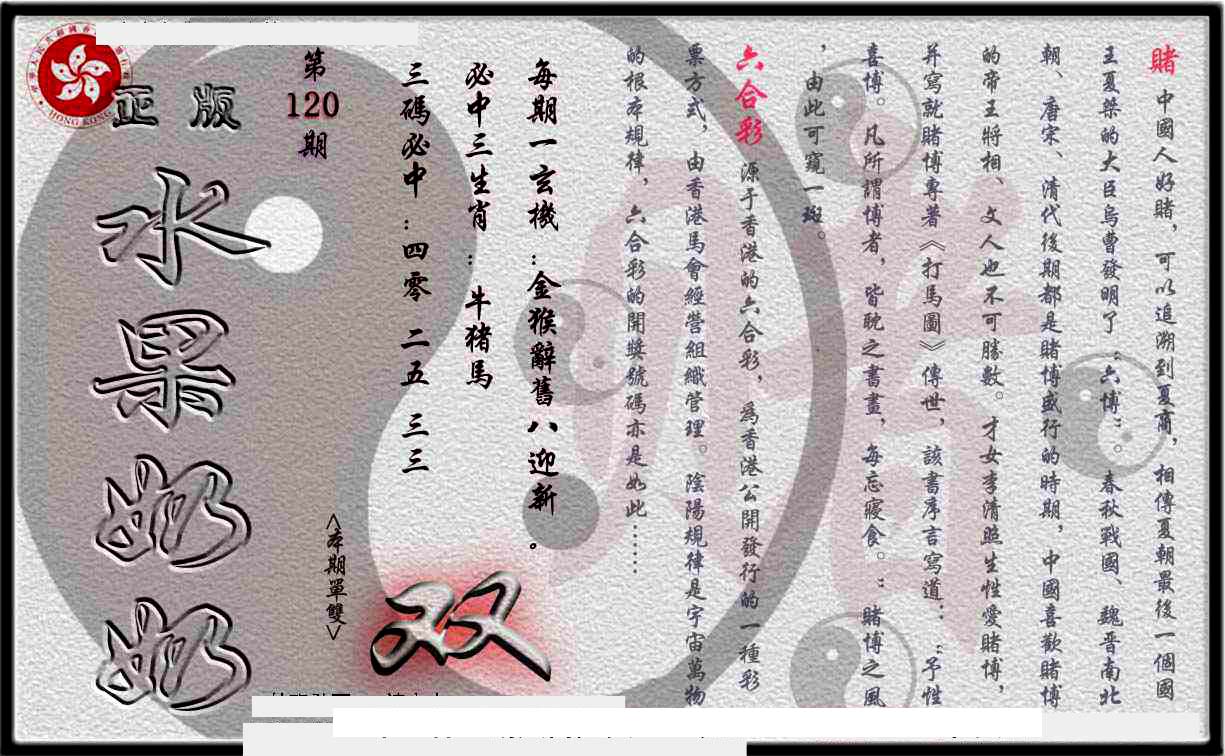 賭 中國人好賭，可以追溯到夏商，相傳夏朝最後一個國
王夏桀的大臣烏曹發明了“六博”。春秋戰國、魏晋南北
朝、唐宋、清代後期都是賭博盛行的時期，中國喜歡賭博
的帝王將相、文人也不可勝數。才女李清照生性愛賭博，
并寫就賭博專著《打馬圖》傳世，該書序言寫道：“予性
喜博。凡所謂博者，皆耽之書畫，每忘寢食。”賭博之風
，由此可窺一斑。
六合彩 源于香港的六合彩，爲香港公開發行的一種彩
票方式，由香港馬會經營組織管理。陰陽規律是宇宙萬物
的根本規律，六合彩的開獎號碼亦是如此……
每期一玄機：金猴辭舊八迎新。
必中三生肖：牛猪馬
三碼必中：四零 二五 三三
第120期
<本期單雙>
双
正版
水果奶奶
HONG KONG